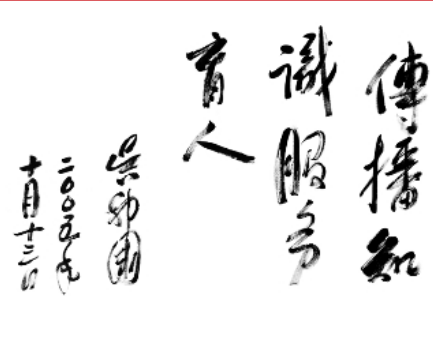 傳播知
識服务
育人
吴邦國
二〇〇五年
十月十三日